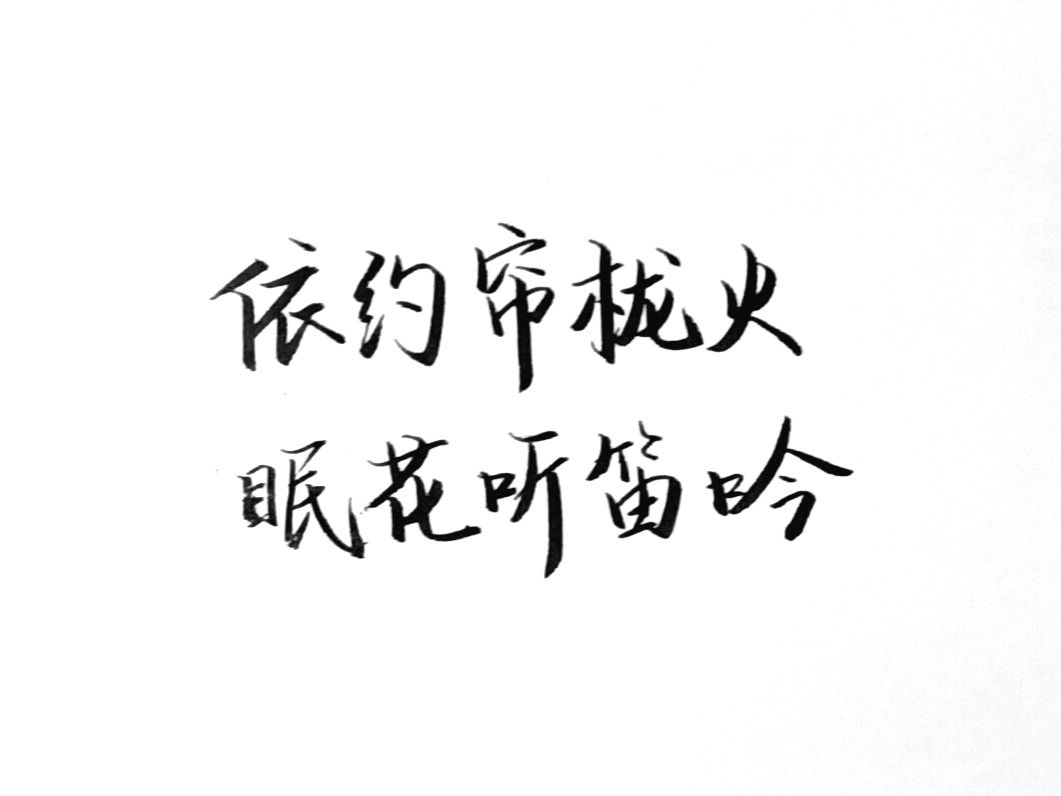 依约帘栊火
眠花听笛吟